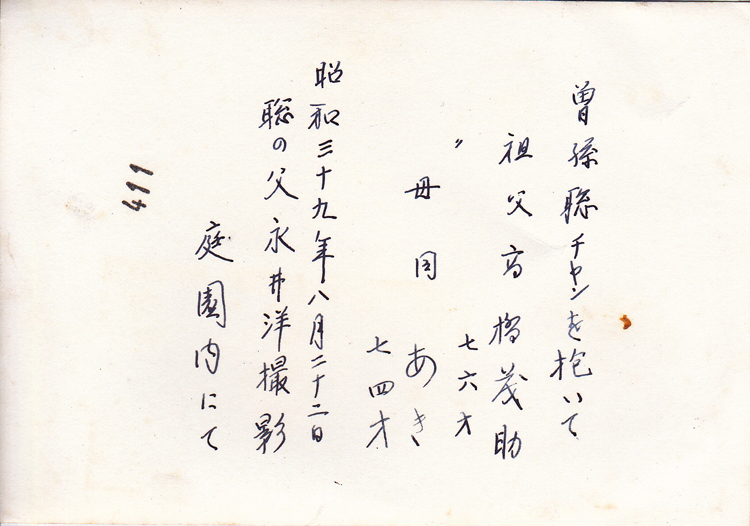 曽孫聡チャンを抱いて
祖父高橋茂助
七六才
〃母同あき
七四才
昭和三十九年八月二十二日
聡の父永井洋撮影
庭園内にて
411